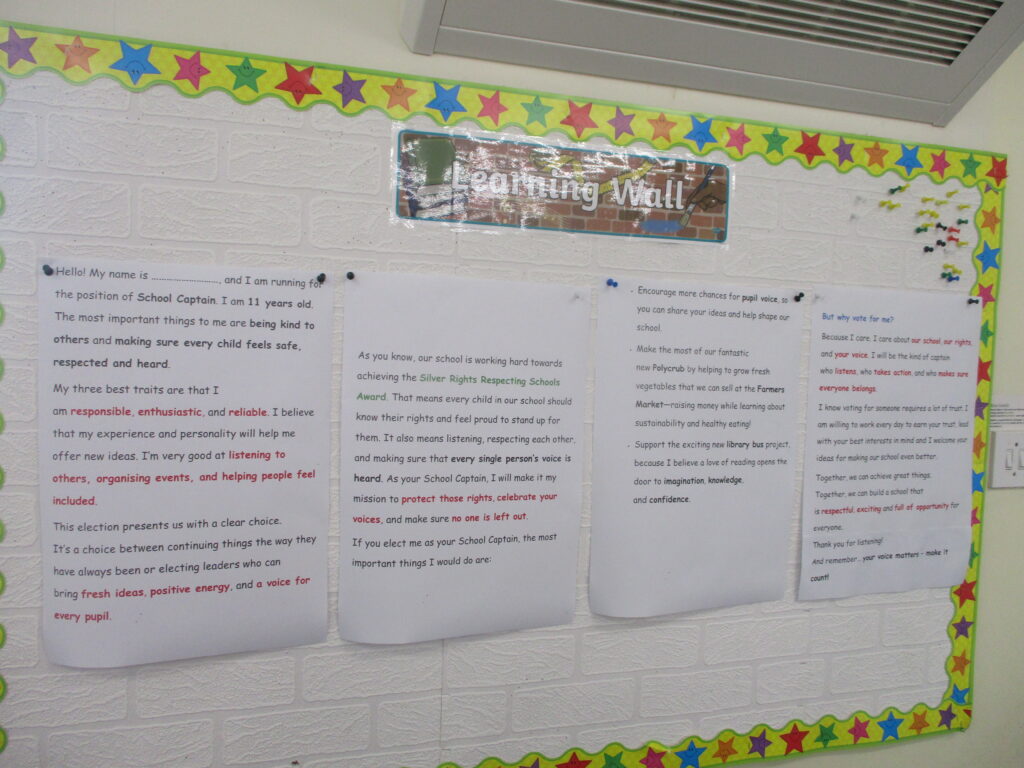 Learning Wall
Hello! My name is ........................, and I am running for
the position of School Captain. I am 11 years old.
The most important things to me are being kind to
others and making sure every child feels safe,
respected and heard.
My three best traits are that I
am responsible, enthusiastic, and reliable. I believe
that my experience and personality will help me
offer new ideas. I'm very good at listening to
others, organising events, and helping people feel
included.
This election presents us with a clear choice.
It's a choice between continuing things the way they
have always been or electing leaders who can
bring fresh ideas, positive energy, and a voice for
every pupil.
As you know, our school is working hard towards
achieving the Silver Rights Respecting Schools
Award. That means every child in our school should
know their rights and feel proud to stand up for
them. It also means listening, respecting each other,
and making sure that every single person's voice is
heard. As your School Captain, I will make it my
mission to protect those rights, celebrate your
voices, and make sure no one is left out.
If you elect me as your School Captain, the most
important things I would do are:
• Encourage more chances for pupil voice, so
you can share your ideas and help shape our
school.
• Make the most of our fantastic
new Polycrub by helping to grow fresh
vegetables that we can sell at the Farmers
Market—raising money while learning about
sustainability and healthy eating!
• Support the exciting new library bus project,
because I believe a love of reading opens the
door to imagination, knowledge,
and confidence.
But why vote for me?
Because I care. I care about our school, our rights,
and your voice. I will be the kind of captain
who listens, who takes action, and who makes sure
everyone belongs.
I know voting for someone requires a lot of trust. I
am willing to work every day to earn your trust, lead
with your best interests in mind and I welcome your
ideas for making our school even better.
Together, we can achieve great things.
Together, we can build a school that
is respectful, exciting and full of opportunity for
everyone.
Thank you for listening!
And remember… your voice matters – make it
count!